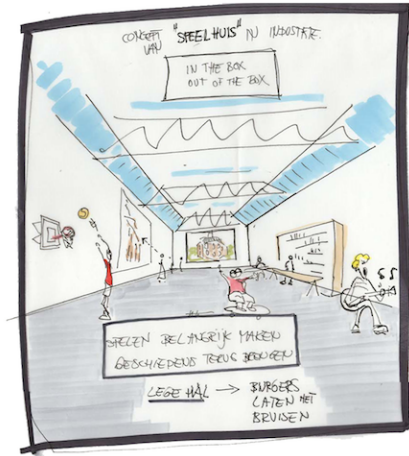 CONCEPT "SPEELHUIS" IN INDUSTRIE.
VAN
IN THE BOX
OUT OF THE BOX
SPELEN BELANGRIJK MAKEN
GESCHIEDENIS TERUG BRENGEN
LEGE HAL → BURGERS
LATEN HET
BRUISEN